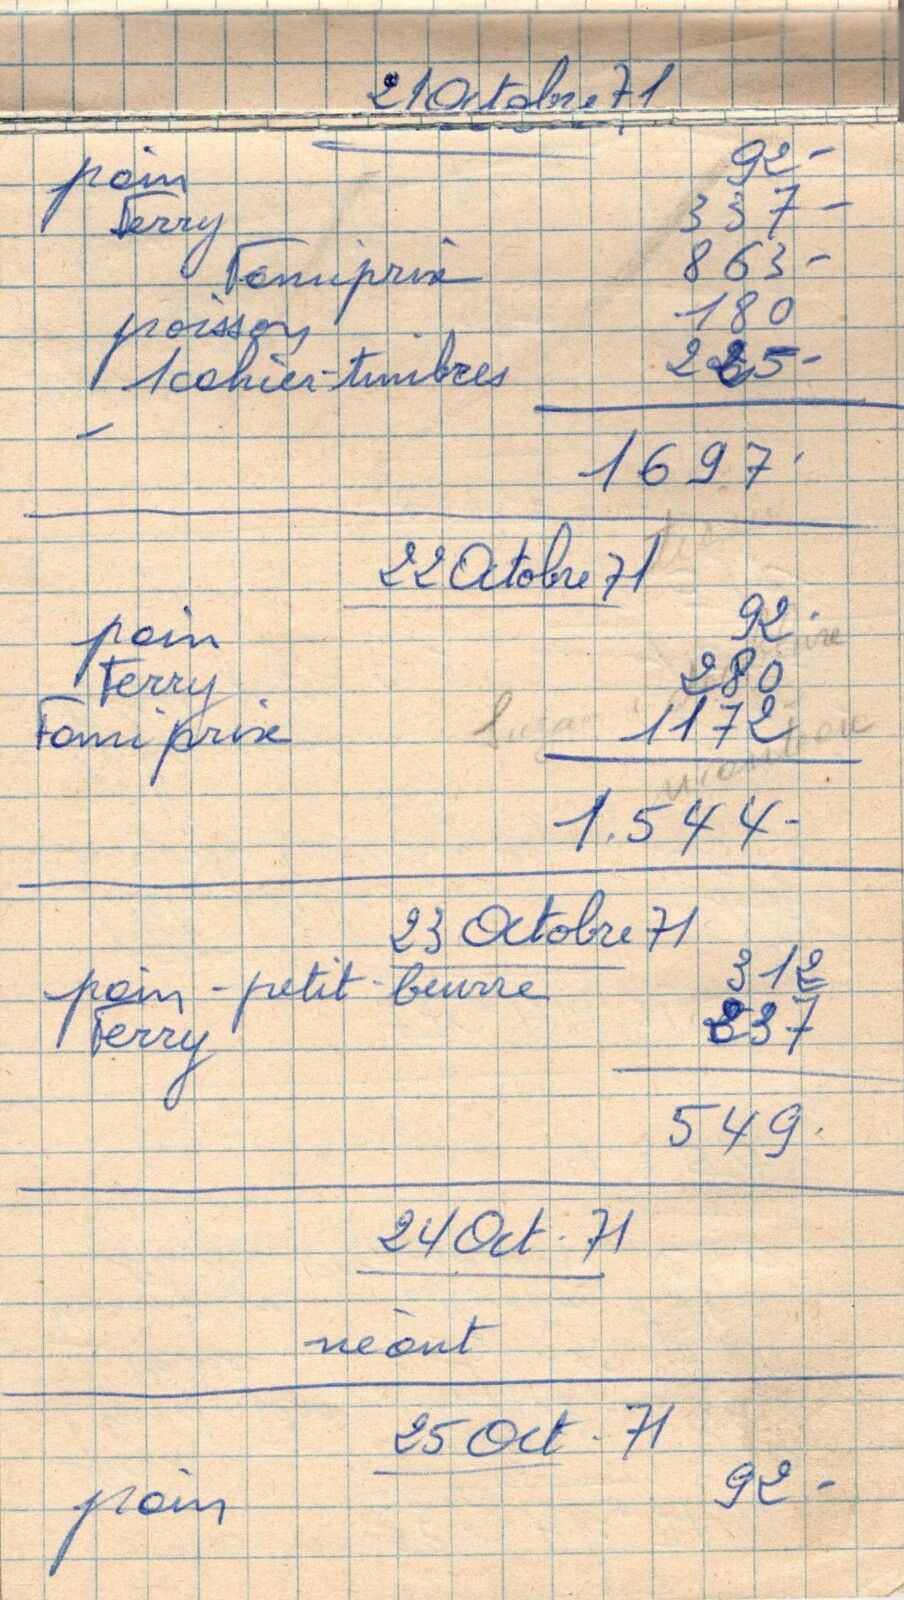 21 Octobre 71
pain 92-
Ferry 337-
Famiprix 863-
poisson 180
1 cahier-timbres 225-
1697.
22 Octobre 71
pain 92.
Ferry 280
Famiprix 1172
1.544-
23 Octobre 71
pain - petit-beurre 312
Ferry 237
549.
24 Oct. 71
néant
25 Oct. 71
pain 92-